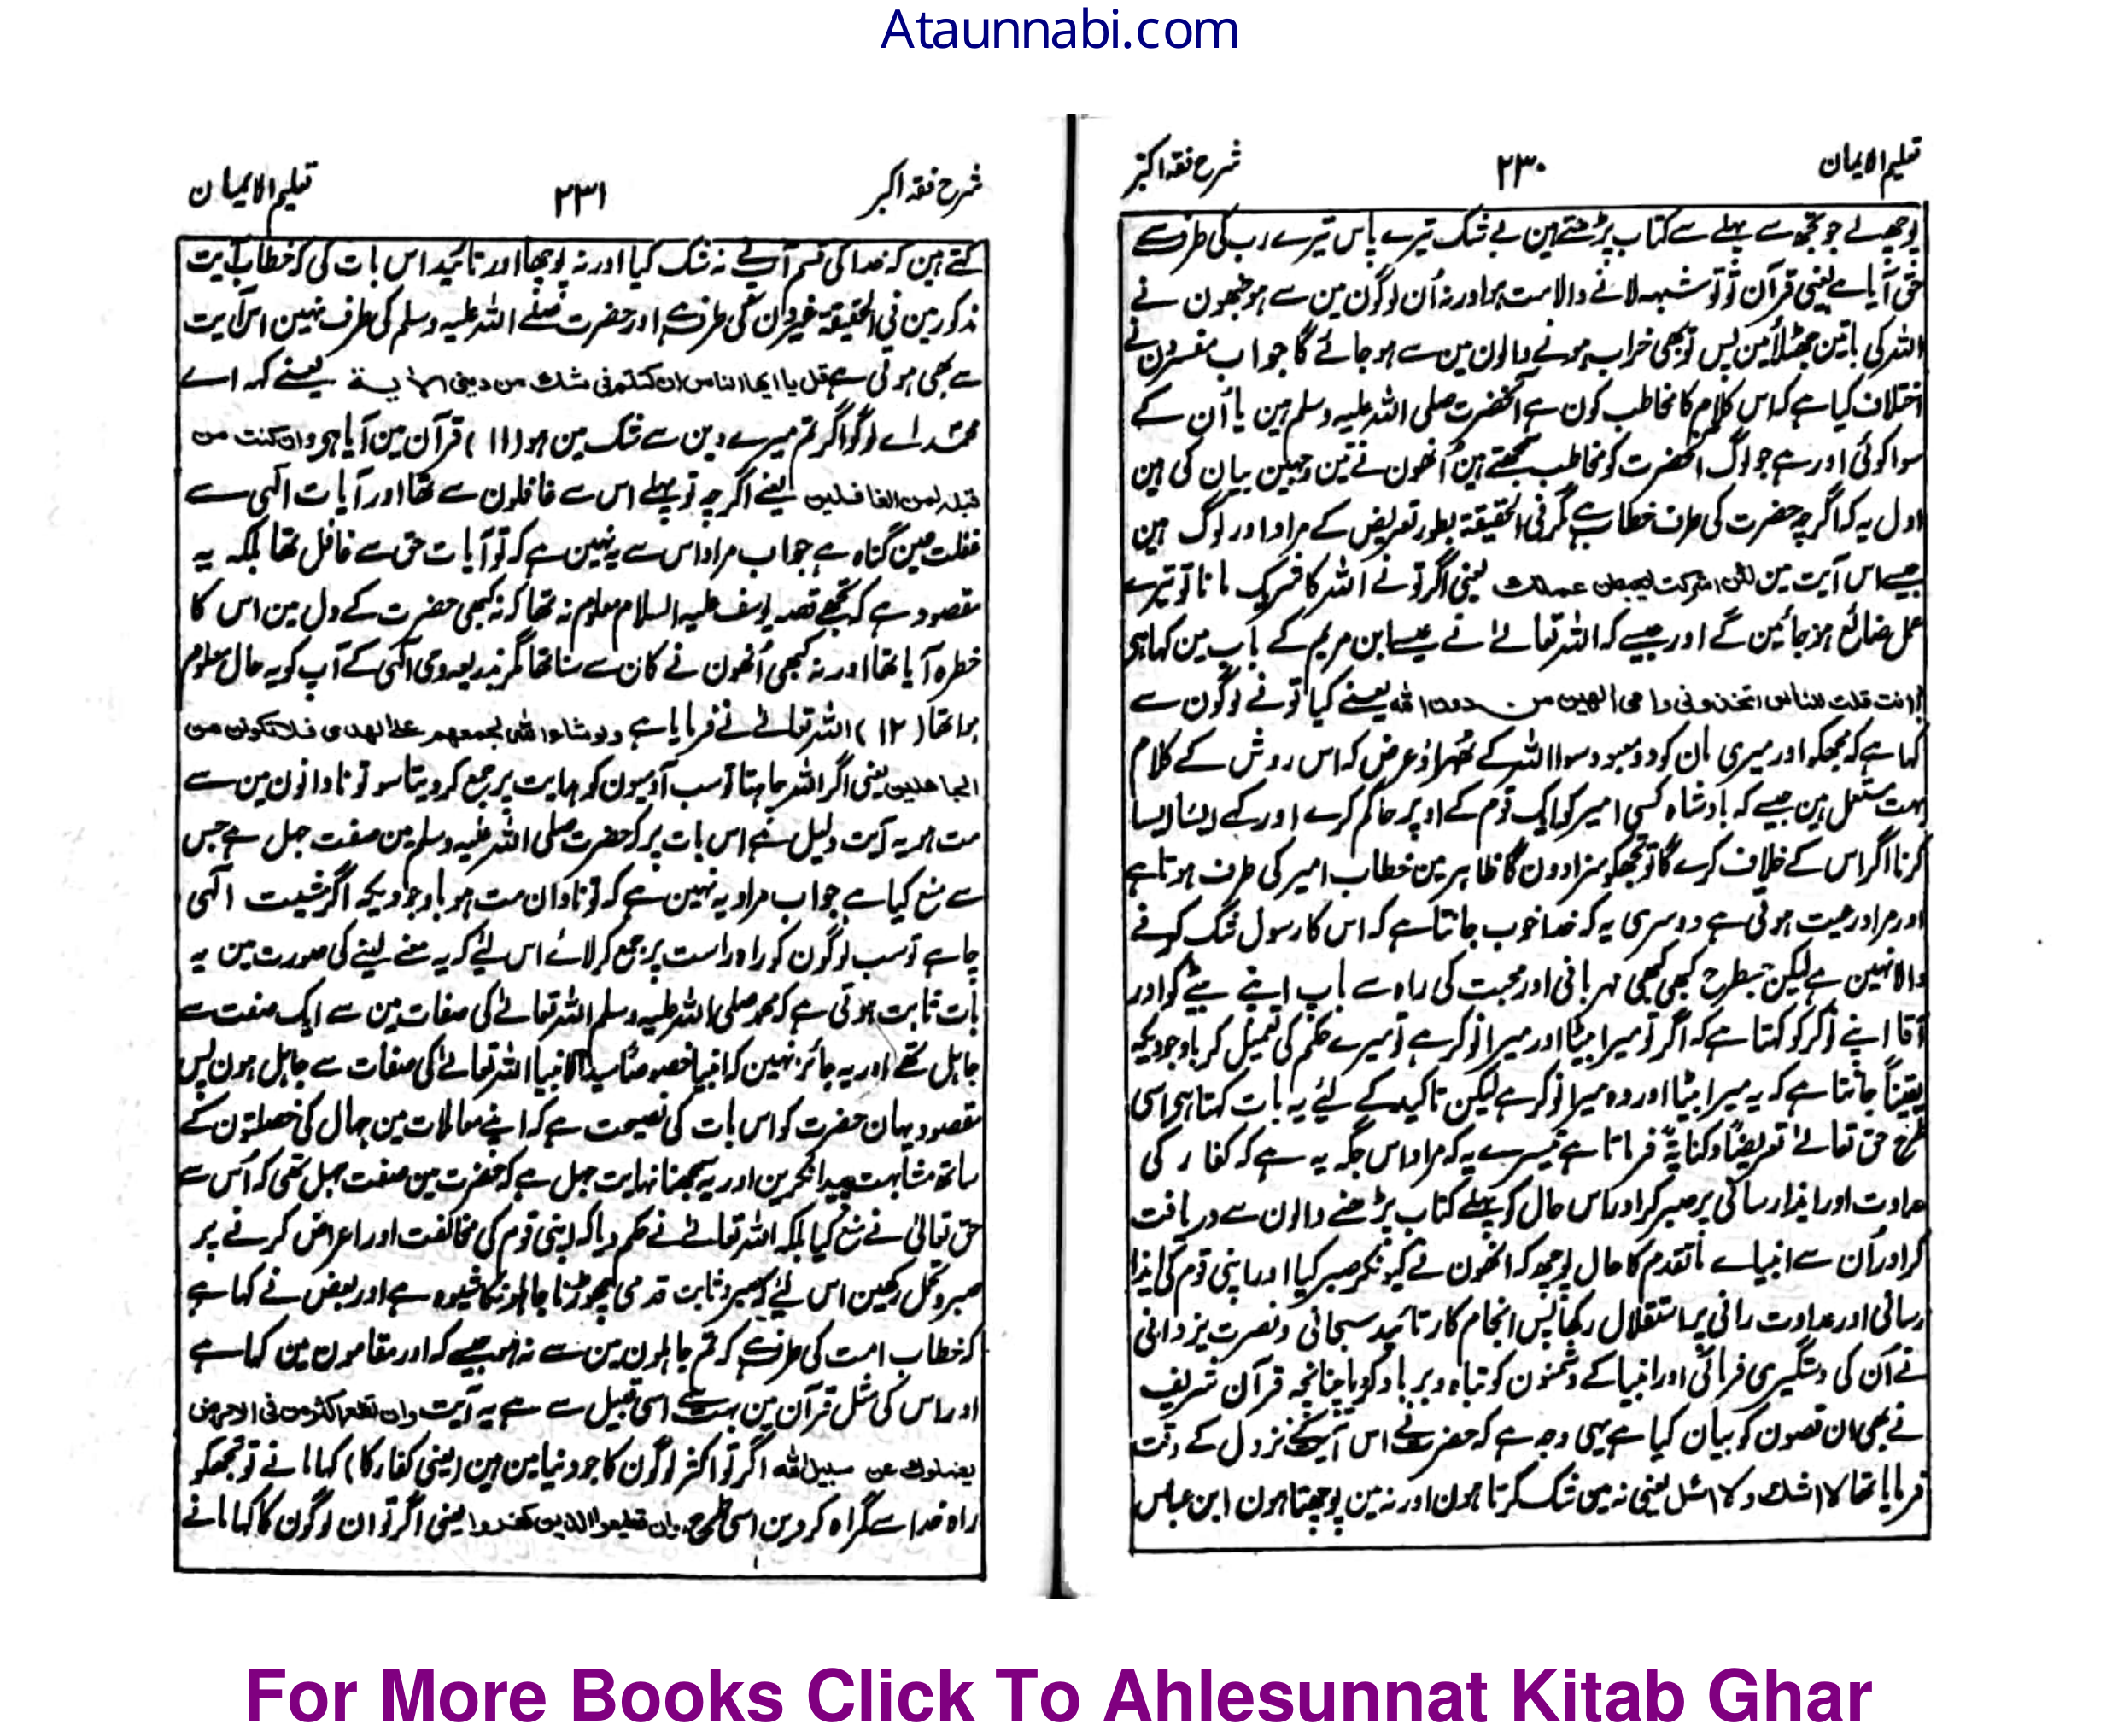 Ataunnabi.com
تعلیم الایمان ۲۳۰ شرح فقہ اکبر
پوچھ لے جو تجھ سے پہلے سے کتاب پڑھتے ہین بے شک تیرے پاس تیرے رب کی طرف سے
حق آیا ہے یعنی قرآن تو تو شبہہ لانے والا مت ہو اور نہ اُن لوگون مین سے ہو جنھون نے
اللہ کی باتین جھٹلائین پس تو بھی خراب ہونے والون مین سے ہو جائے گا جواب مفسرون نے
اختلاف کیا ہے کہ اس کلام کا مخاطب کون ہے آنحضرت صلی اللہ علیہ وسلم ہین یا اُن کے
سوا کوئی اور ہے جو لوگ آنحضرت کو مخاطب سمجھتے ہین اُنھون نے تین وجہین بیان کی ہین
اول یہ کہ اگرچہ حضرت کی طرف خطاب ہے مگر فی الحقیقۃ بطور تعریض کے مراد اور لوگ ہین
جیسے اس آیت مین لئن اشرکت لیحبطن عملک یعنی اگر تو نے اللہ کا شریک مانا تو تیرے
عمل ضائع ہو جائین گے اور جیسے کہ اللہ تعالےٰ نے عیسے ابن مریم کے باب مین کہا ہی
أانت قلت للناس اتخذونی وامی الٰھین من دون اللہ یعنے کیا تو نے لوگون سے
کہا ہے کہ مجھکو اور میری مان کو دو معبود سوا اللہ کے ٹھہراؤ غرض کہ اس روش کے کلام
بہت مستعمل ہین جیسے کہ بادشاہ کسی امیر کو ایک قوم کے اوپر حاکم کرے اور کہے ایسا ایسا
کرنا اگر اس کے خلاف کرے گا تو تجھکو سزا دون گا ظاہر مین خطاب امیر کی طرف ہوتا ہے
اور مراد رعیت ہوتی ہے دوسری یہ کہ خدا خوب جانتا ہے کہ اس کا رسول شک کرنے
والا نہین ہے لیکن جسطرح کبھی کبھی مہربانی اور محبت کی راہ سے باپ اپنے بیٹے کو اور
آقا اپنے نوکر کو کہتا ہے کہ اگر تو میرا بیٹا اور میرا نوکر ہے تو میرے حکم کی تعمیل کر باوجودیکہ
یقیناً جانتا ہے کہ یہ میرا بیٹا اور وہ میرا نوکر ہے لیکن تاکید کے لیے یہ بات کہتا ہی اسی
طرح حق تعالےٰ تعریضاً وکنایۃً فرماتا ہے تیسرے یہ کہ مراد اس جگہ یہ ہے کہ کفار کی
عداوت اور ایذا رسانی پر صبر کر اور اس حال کو پہلے کتاب پڑھنے والون سے دریافت
کر اور اُن سے انبیاے ماتقدم کا حال پوچھ کہ انھون نے کیونکر صبر کیا اور اپنی قوم کی ایذا
رسانی اور عداوت رانی پر استقلال رکھا پس انجام کار تائید سبحانی ونصرت یزدانی
نے اُن کی دستگیری فرمائی اور انبیا کے دشمنون کو تباہ وبرباد کردیا چنانچہ قرآن شریف
نے بھی ان قصون کو بیان کیا ہے یہی وجہ ہے کہ حضرت نے اس آیت کے نزول کے وقت
فرمایا تھا لا اشک ولا اسئل یعنی نہ مین شک کرتا ہون اور نہ مین پوچھتا ہون ابن عباس
شرح فقہ اکبر ۲۳۱ تعلیم الایمان
کہتے ہین کہ خدا کی قسم آپ نے نہ شک کیا اور نہ پوچھا اور تائید اس بات کی کہ خطاب آیت
مذکور مین فی الحقیقۃ غیرون کی طرف ہے اور حضرت صلے اللہ علیہ وسلم کی طرف نہین اس آیت
سے بھی ہوتی ہے قل یا ایھا الناس ان کنتم فی شک من دینی الآیۃ یعنے کہہ اے
محمد اے لوگو اگر تم میرے دین سے شک مین ہو (۱۱) قرآن مین آیا ہی وان کنت من
قبلہ لمن الغافلین یعنے اگرچہ تو پہلے اس سے غافلون سے تھا اور آیات الٰہی سے
غفلت عین گناہ ہے جواب مراد اس سے یہ نہین ہے کہ تو آیات حق سے غافل تھا بلکہ یہ
مقصود ہے کہ تجھے قصہ یوسف علیہ السلام معلوم نہ تھا کہ نہ کبھی حضرت کے دل مین اس کا
خطرہ آیا تھا اور نہ کبھی اُنھون نے کان سے سنا تھا مگر بذریعہ وحی الٰہی کے آپ کو یہ حال معلوم
ہوا تھا (۱۲) اللہ تعالےٰ نے فرمایا ہے ولو شاء اللہ لجمعھم علی الھدی فلا تکونن من
الجاھلین یعنی اگر اللہ چاہتا تو سب آدمیون کو ہدایت پر جمع کر دیتا سو تو نادانون مین سے
مت ہو یہ آیت دلیل ہے اس بات پر کہ حضرت صلی اللہ علیہ وسلم مین صفت جہل ہے جس
سے منع کیا ہے جواب مراد یہ نہین ہے کہ تو نادان مت ہو باوجودیکہ اگر مشیت الٰہی
چاہے تو سب لوگون کو راہ راست پر جمع کر لائے اس لیے کہ یہ معنے لینے کی صورت مین یہ
بات ثابت ہوتی ہے کہ محمد صلی اللہ علیہ وسلم اللہ تعالےٰ کی صفات مین سے ایک صفت سے
جاہل تھے اور یہ جائز نہین کہ انبیا خصوصاً سید الانبیا اللہ تعالےٰ کی صفات سے جاہل ہون پس
مقصود یہان حضرت کو اس بات کی نصیحت ہے کہ اپنے معاملات مین جہال کی خصلتون کے
ساتھ مشابہت پیدا نکرین اور یہ سمجھنا نہایت جہل ہے کہ حضرت مین صفت جہل تھی کہ اُس سے
حق تعالیٰ نے منع کیا بلکہ اللہ تعالےٰ نے حکم دیا کہ اپنی قوم کی مخالفت اور اعراض کرنے پر
صبر وتحمل رکھین اس لیے کہ صبر وثابت قدمی چھوڑنا جاہلونکا شیوہ ہے اور بعض نے کہا ہے
کہ خطاب امت کی طرف ہے کہ تم جاہلون مین سے نہ ہو جیسے کہ اور مقامون مین کہا ہے
اور اس کی مثل قرآن مین بہت ہے اسی قبیل سے ہے یہ آیت وان تطع اکثر من فی الارض
یضلوک عن سبیل اللہ اگر تو اکثر لوگون کا جو دنیا مین ہین (یعنی کفار کا) کہا مانے تو تجھکو
راہ خدا سے گمراہ کر دین اسی طرح وان تطیعوا الذین کفروا یعنی اگر تو ان لوگون کا کہا مانے
For More Books Click To Ahlesunnat Kitab Ghar